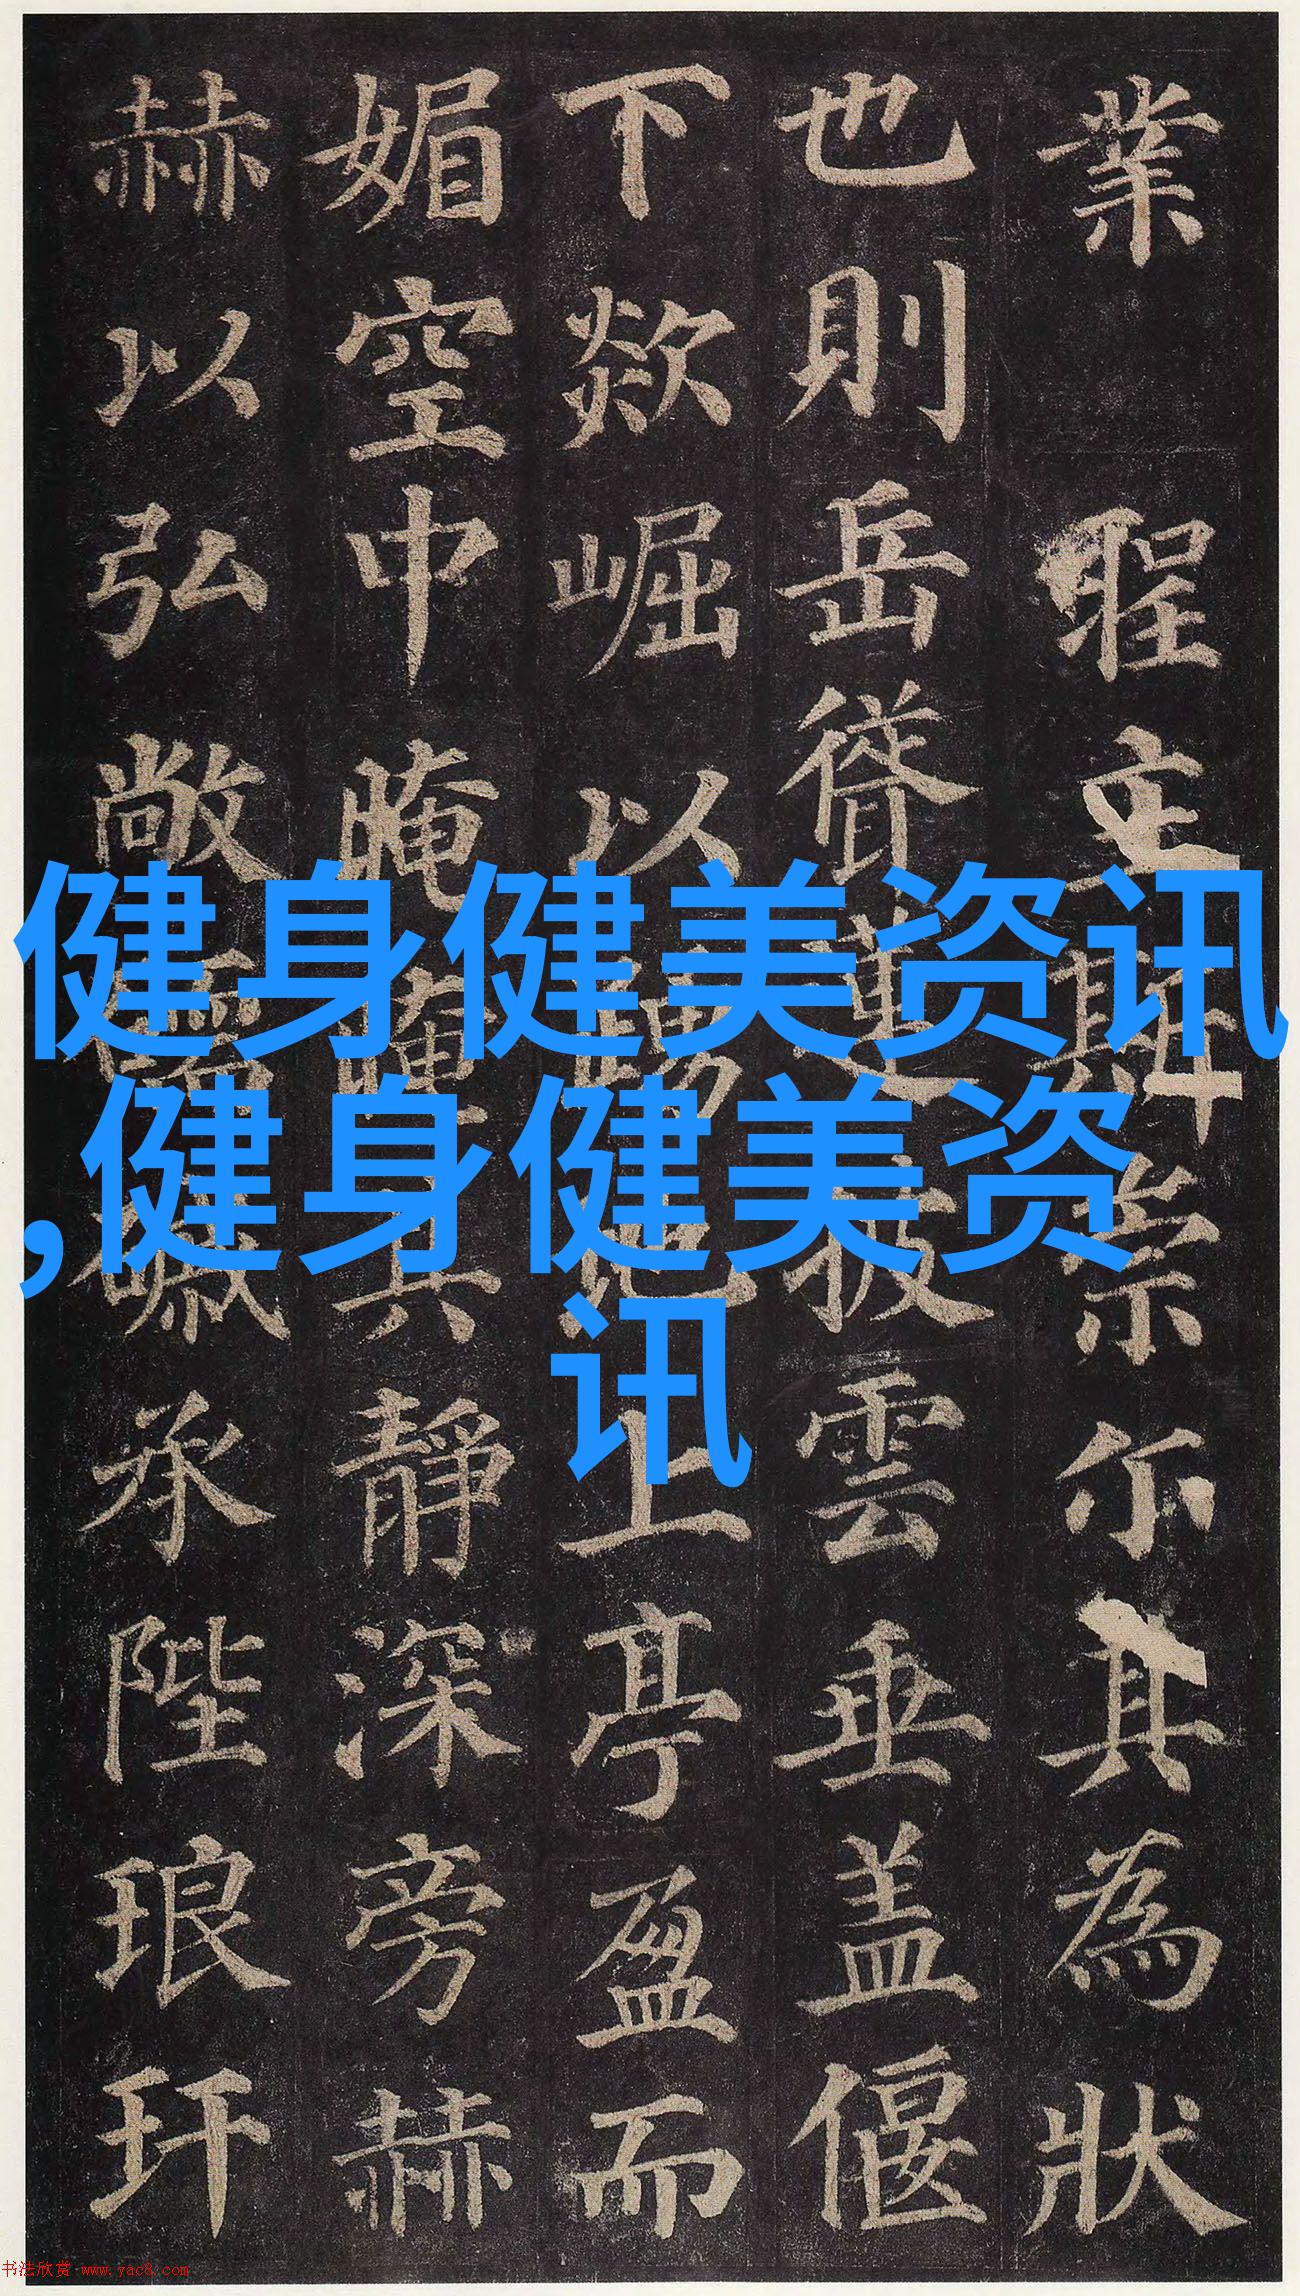 業斯崇尓其為狀
也則岳聳蓮披雲垂盖偃
下欻崛以踴地上亭盈而
媚空中晻靜深旁赫
赫以弘敞磩承陛琅玕
健身健美资讯
,健身健美资
讯
书法欣赏 www.yac8.com